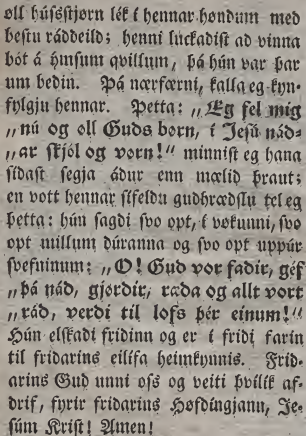 øll húsẻstjørn lék í hennar høndum med
beztu ráddeild; henni luckadist ad vinna
bót á ýmsum qvillum, þá hún var þar
um bedin. Þá nærfærni, kalla eg kyn-
fylgju hennar. Þetta: „Eg fel mig
„nú og øll Guds børn, í Jesú nád-
„ar skjól og vørn!“ minnist eg hana
sídast segja ádur enn mælid þraut;
en vott hennar sífeldu gudhrædslu tel eg
þetta: hún sagdi svo opt, í vøkunni, svo
opt millum dúranna og svo opt uppúr
svefninum: „O! Gud vor fadir, géf
„þá nád, gjørdir, ræda og allt vort
„rád, verdi til lofs þér einum!“
Hún elskadi fridinn og er í fridi farin
til fridarins eilífa heimkynnis. Frid-
arins Gud unni oss og veiti þvílík af-
drif, fyrir fridarins Høfdíngjann, Je-
súm Krist! Amen!